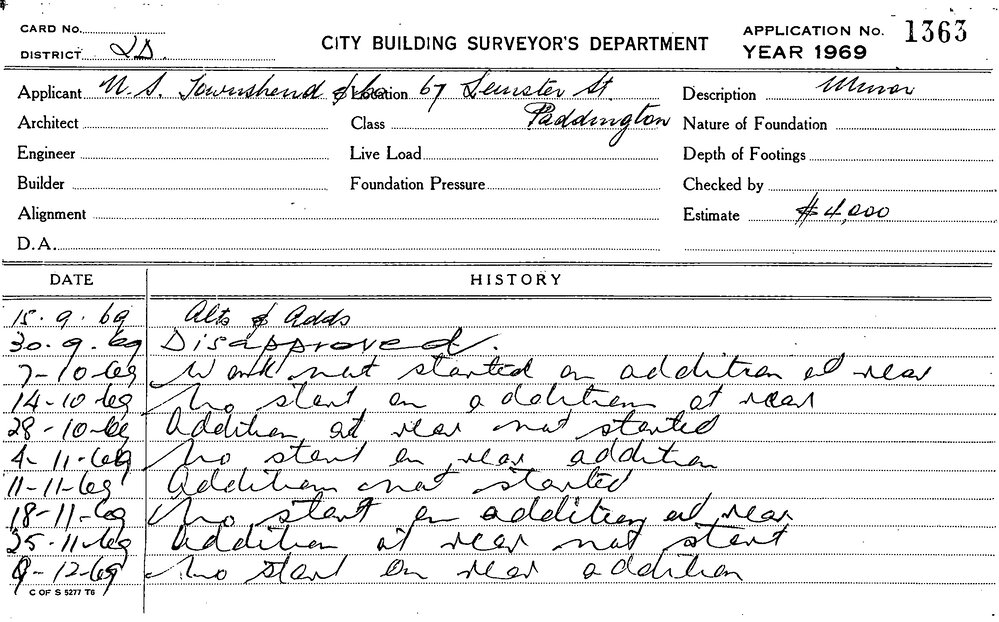 CARD No.
DISTRICT 2D.
CITY BUILDING SURVEYOR'S DEPARTMENT
APPLICATION No. 1363
YEAR 1969
Applicant N. S. Townshend & Co Location 67 Leinster St. Paddington Description Minor
Architect Class Nature of Foundation
Engineer Live Load Depth of Footings
Builder Foundation Pressure Checked by
Alignment Estimate $4,000
D.A.
DATE HISTORY
15.9.69 Alts & Adds
30.9.69 Disapproved.
7-10-69 Work not started on addition at rear
14-10-69 No start on addition at rear
28-10-69 Addition at rear not started
4-11-69 No start on rear addition
11-11-69 Addition not started
18-11-69 No start on addition at rear
25-11-69 Addition at rear not start
9-12-69 No start on rear addition
C OF S 5277 T6